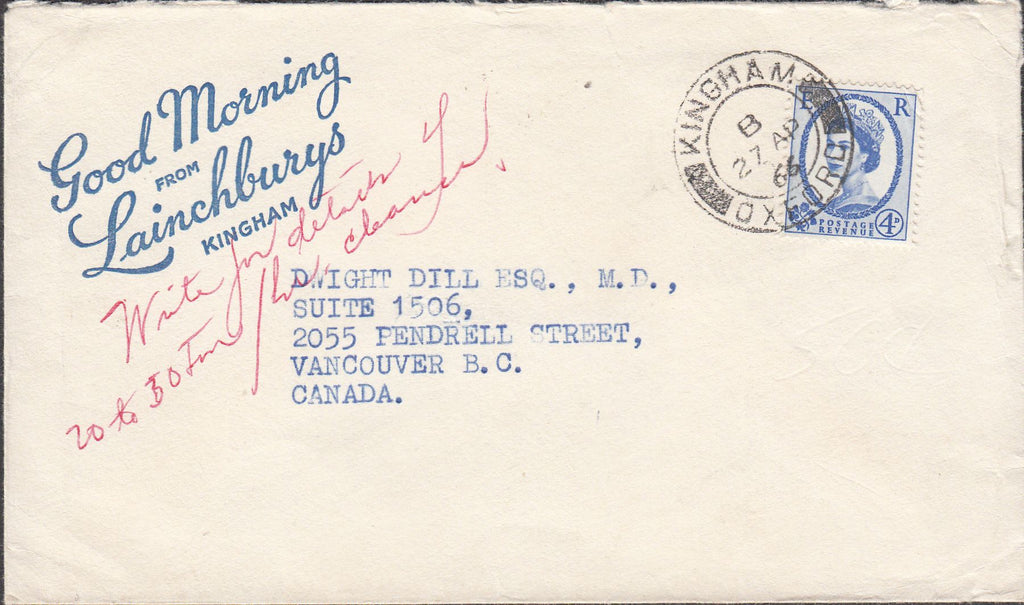 Good Morning
FROM
Lainchburys
KINGHAM
KINGHAM
B
27 AP
66
OXFORD
E R
POSTAGE
REVENUE
4D
Write for details of
20 to 30 Ton / hr. cleaner.
DWIGHT DILL ESQ., M.D.,
SUITE 1506,
2055 PENDRELL STREET,
VANCOUVER B.C.
CANADA.